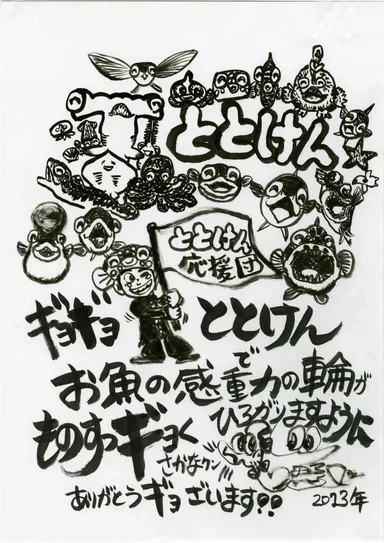 ととけん
ととけん
応援団
ギョギョ ととけん で
お魚の感動の輪が
ものすっギョく ひろガりますように
さかなクン
ありがとうギョざいます!!
2013年